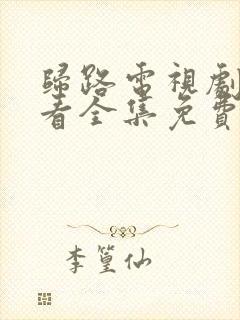 歸路電視劇
看全集免費
李篁仙